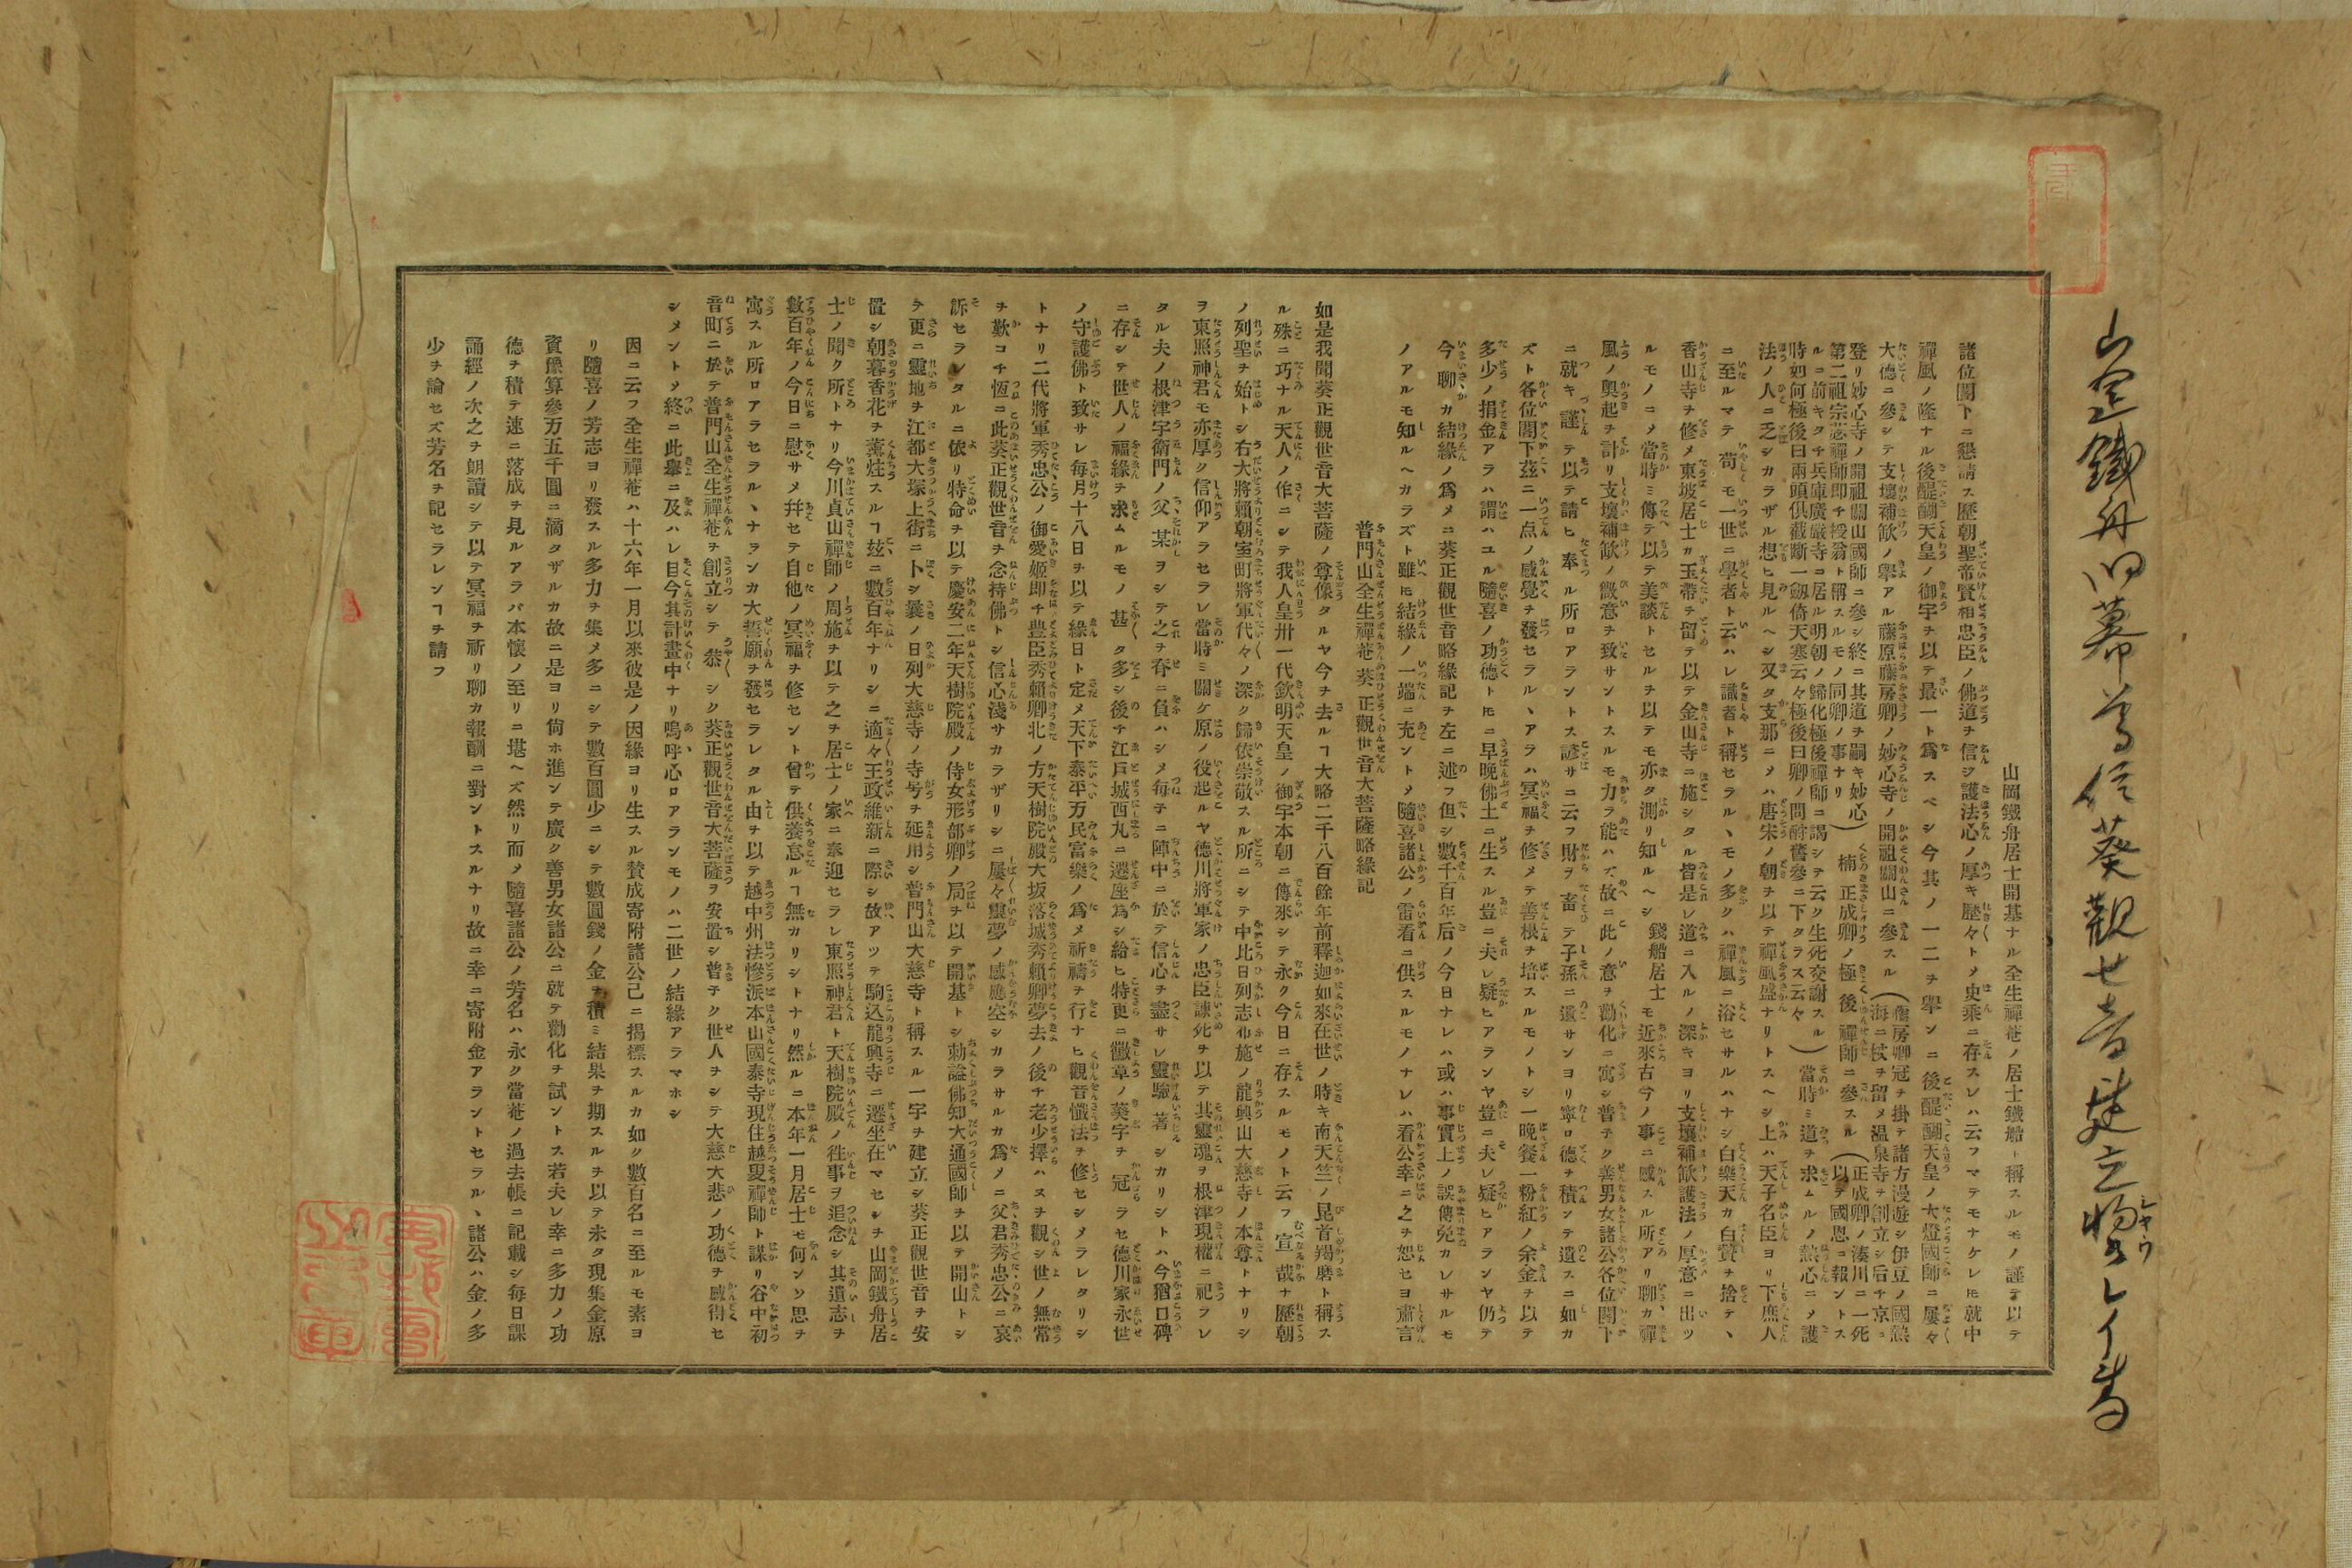 山岡鐵舟居士開基ナル全生禪菴ノ居士鐵船ト稱スルモノ謹テ以テ
諸位閣下ニ懇請ス歷朝聖帝賢相忠臣ノ佛道ヲ信シ護法心ノ厚キ歷々トメ史乘ニ存スレハ云フマテモナケレ𪜈就中
禪風ノ隆ナル後醍醐天皇ノ御宇ヲ以テ最一ト爲スベシ今其ノ一二ヲ擧ンニ後醍醐天皇ノ大燈國師ニ屢々
大德ニ參シテ支壞補缺ノ擧アル藤原藤房卿ノ妙心寺ノ開祖關山ニ參スル(藤房卿冠ヲ掛テ諸方漫遊シ伊豆ノ國熱
海ニ杖ヲ留メ溫泉寺ヲ創立シ后チ京ニ
登リ妙心寺ノ開祖關山國師ニ參シ終ニ其道ヲ嗣キ妙心
第二祖宗弼禪師卽チ授翁ト稱スルモノ同卿ノ事ナリ)楠正成卿ノ極後禪師ニ參スル(正成卿ノ湊川ニ一死
以テ國恩ニ報ントス
ルヿ前キタチ兵庫廣嚴寺ニ居ル明朝ノ歸化極後禪師ニ謁シテ云ク生死交謝スル
時如何極後曰兩頭俱截斷一劔倚天寒云々極後曰卿ノ問酧舊參ニ下タラス云々)當時ミ道ヲ求ムルノ熱心ニメ護
法ノ人ニ乏シカラザル想ヒ見ルヘシ又タ支那ニメハ唐宋ノ朝ヲ以テ禪風盛ナリトスヘシ上ハ天子名臣ヨリ下庶人
ニ至ルマテ苟モ一世ニ學者ト云ハレ識者ト稱セラルヽモノ多クハ禪風ニ浴セサルハナシ白樂天カ白贊ヲ捨テヽ
香山寺ヲ修メ東坡居士カ玉帶ヲ留テ以テ金山寺ニ施シタル皆是レ道ニ入ルノ深キヨリ支壞補缺護法ノ厚意ニ出ツ
ルモノニメ當時ミ傳テ以テ美談トセルヲ以テモ亦タ測リ知ルヘシ 錢船居士モ近來古今ノ事ニ感スル所アリ聊カ禪
風ノ興起ヲ計リ支壞補缺ノ微意ヲ致サントスルモ力ラ能ハズ故ニ此ノ意ヲ勸化ニ寓シ普テク善男女諸公各位閣下
ニ就キ謹テ以テ請ヒ奉ル所ロアラントス諺サニ云フ財ヲ畜テ子孫ニ遺サンヨリ寧ロ德ヲ積ンテ遺スニ如カ
ズト各位閣下茲ニ一点ノ感覺ヲ發セラルヽアラハ冥福ヲ修メテ善根ヲ培スルモノトシ一晩餐一粉紅ノ余金ヲ以テ
多少ノ捐金アラハ謂ハユル隨喜ノ功德ト𪜈ニ早晚佛土ニ生スル豈ニ夫レ疑ヒアランヤ豈ニ夫レ疑ヒアランヤ仍テ
今聊カ結緣ノ爲メニ葵正觀世音略緣記ヲ左ニ述フ但シ數千百年后ノ今日ナレハ或ハ事實上ノ誤傳免カレサルモ
ノアルモ知ルヘカラズト雖𪜈結緣ノ一端ニ充ントメ隨喜諸公ノ雷看ニ供スルモノナレハ看公幸ニ之ヲ恕セヨ肅言
普門山全生禪菴葵正觀世音大菩薩略緣記
如是我聞葵正觀世音大菩薩ノ尊像タルヤ今ヲ去ルヿ大略二千八百餘年前釋迦如來在世ノ時キ南天竺ノ毘首羯磨ト稱ス
ル殊ニ巧ナル天人ノ作ニシテ我人皇卅一代欽明天皇ノ御宇本朝ニ傳來シテ永ク今日ニ存スルモノト云フ宣哉ナ歷朝
ノ列聖ヲ始トシ右大將賴朝室町將軍代々ノ深ク歸依崇敬スル所ニシテ中比日列志布施ノ龍興山大慈寺ノ本尊トナリシ
ヲ東照神君モ亦厚ク信仰アラセラレ當時ミ關ケ原ノ役起ルヤ德川將軍家ノ忠臣諫死ヲ以テ其靈魂ヲ根津現權ニ祀ヲレ
タル夫ノ根津宇衛門ノ父某ヲシテ之ヲ脊ニ負ハシメ每テニ陣中ニ於テ信心ヲ盡サレ靈驗著シカリシトハ今猶口碑
ニ存シテ世人ノ福緣ヲ求ムルモノ甚タ多シ後チ江戸城西丸ニ遷座爲シ給ヒ特更ニ徽章ノ葵字ヲ冠ラセ德川家永世
ノ守護佛ト致サレ每月十八日ヲ以テ緣日ト定メ天下泰平万民富樂ノ爲メ祈禱ヲ行ナヒ觀音懺法ヲ修セシメラレタリシ
トナリ二代將軍秀忠公ノ御愛姬卽チ豊臣秀賴卿北ノ方天樹院殿大坂落城秀賴卿夢去ノ後チ老少擇ハヌヲ觀シ世ノ無常
ヲ歎コチ恆ニ此葵正觀世音ヲ念持佛トシ信心淺サカラザリシニ屢々靈夢ノ感應空シカラサルカ爲メニ父君秀忠公ニ哀
訴セラレタルニ依リ特命ヲ以テ慶安二年天樹院殿ノ侍女形部卿ノ局ヲ以テ開基トシ勅諡佛知大通國師ヲ以テ開山トシ
テ更ニ靈地ヲ江都大塚上街ニ卜シ曩ノ日列大慈寺ノ寺号ヲ延用シ普門山大慈寺ト稱スル一宇ヲ建立シ葵正觀世音ヲ安
置シ朝暮香花ヲ薰炷スルヿ玆ニ數百年ナリシニ適々王政維新ニ際シ故アツテ駒込龍興寺ニ遷坐在マセシヲ山岡鐵舟居
士ノ聞ク所トナリ今川貞山禪師ノ周施ヲ以テ之ヲ居士ノ家ニ奉迎セラレ東照神君ト天樹院殿ノ徃事ヲ追念シ其遺志ヲ
數百年ノ今日ニ慰サメ幷セテ自他ノ冥福ヲ修セント曾テ供養怠ルヿ無カリシトナリ然ルニ本年一月居士モ何ンソ思ヲ
寓スル所ロアラセラルヽナランカ大誓願ヲ發セラレタル由ヲ以テ越中州法燈派本山國泰寺現住越叟禪師ト謀リ谷中初
音町ニ於テ普門山全生禪菴ヲ創立シテ恭シク葵正觀世音大菩薩ヲ安置シ普テク世人ヲシテ大慈大悲ノ功德ヲ感得セ
シメントメ終ニ此擧ニ及ハレ目今其計畫中ナリ嗚呼心ロアランモノハ二世ノ結緣アラマホシ
因ニ云フ全生禪菴ハ十六年一月以來彼是ノ因緣ヨリ生スル賛成寄附諸公已ニ揭標スルカ如ク數百名ニ至ルモ素ヨ
リ隨喜ノ芳志ヨリ發スル多力ヲ集メ多ニシテ數百圓少ニシテ數圓錢ノ金ヲ積ミ結果ヲ期スルヲ以テ未タ現集金原
資豫算參万五千圓ニ滿タザルカ故ニ是ヨリ尙ホ進ンテ廣ク善男女諸公ニ就テ勸化ヲ試ントス若夫レ幸ニ多力ノ功
德ヲ積テ速ニ落成ヲ見ルアラバ本懷ノ至リニ堪ヘズ然リ而メ隨喜諸公ノ芳名ハ永ク當菴ノ過去帳ニ記載シ每日課
誦經ノ次之ヲ朗讀シテ以テ冥福ヲ祈リ聊カ報酬ニ對ントスルナリ故ニ幸ニ寄附金アラントセラルヽ諸公ハ金ノ多
少ヲ論セズ芳名ヲ記セラレンヿヲ請フ